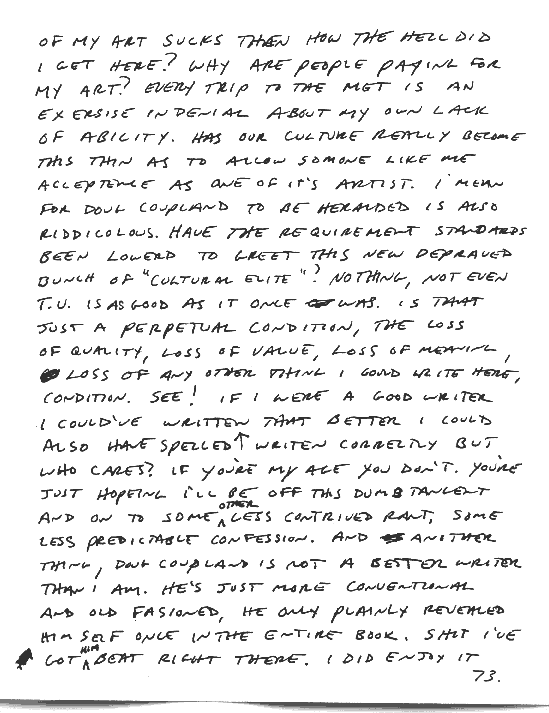 OF MY ART SUCKS THEN HOW THE HELL DID
I GET HERE? WHY ARE PEOPLE PAYING FOR
MY ART? EVERY TRIP TO THE MET IS AN
EXERSISE IN DENIAL ABOUT MY OWN LACK
OF ABILITY. HAS OUR CULTURE REALLY BECOME
THIS THIN AS TO ALLOW SOMONE LIKE ME
ACCEPTENCE AS ONE OF IT'S ARTIST. I MEAN
FOR DOUG COUPLAND TO BE HERALDED IS ALSO
RIDDICOLOUS. HAVE THE REQUIREMENT STANDARDS
BEEN LOWERD TO GREET THIS NEW DEPRAVED
BUNCH OF "CULTURAL ELITE"? NOTHING, NOT EVEN
T.V. IS AS GOOD AS IT ONCE WAS. IS THAT
JUST A PERPETUAL CONDITION, THE LOSS
OF QUALITY, LOSS OF VALUE, LOSS OF MEANING,
LOSS OF ANY OTHER THING I COULD WRITE HERE,
CONDITION. SEE! IF I WERE A GOOD WRITER
I COULD'VE WRITTEN THAT BETTER I COULD
ALSO HAVE SPELLED ↑ WRITEN CORRECTLY BUT
WHO CARES? IF YOU'RE MY AGE YOU DON'T. YOU'RE
JUST HOPEING I'LL BE OFF THIS DUMB TANGENT
AND ON TO SOME OTHER LESS CONTRIVED RANT, SOME
LESS PREDICTABLE CONFESSION. AND ANOTHER
THING, DOUG COUPLAND IS NOT A BETTER WRITER
THAN I AM. HE'S JUST MORE CONVENTIONAL
AND OLD FASIONED, HE ONLY PLAINLY REVEALED
HIMSELF ONCE IN THE ENTIRE BOOK. SHIT I'VE
GOT HIM BEAT RIGHT THERE. I DID ENJOY IT
73.